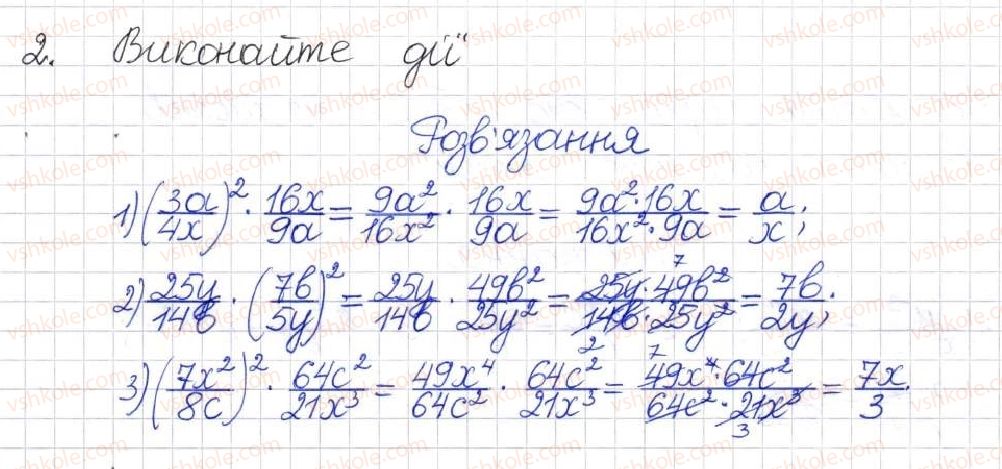 2. Виконайте дії
Розв'язання
1) (3a/4x)² · 16x/9a = 9a²/16x² · 16x/9a = 9a²·16x/16x²·9a = a/x;
2) 25y/14b · (7b/5y)² = 25y/14b · 49b²/25y² = 25y·49b²/14b·25y² = 7b/2y;
3) (7x²/8c)² · 64c²/21x³ = 49x⁴/64c² · 64c²/21x³ = 49x⁴·64c²/64c²·21x³ = 7x/3.